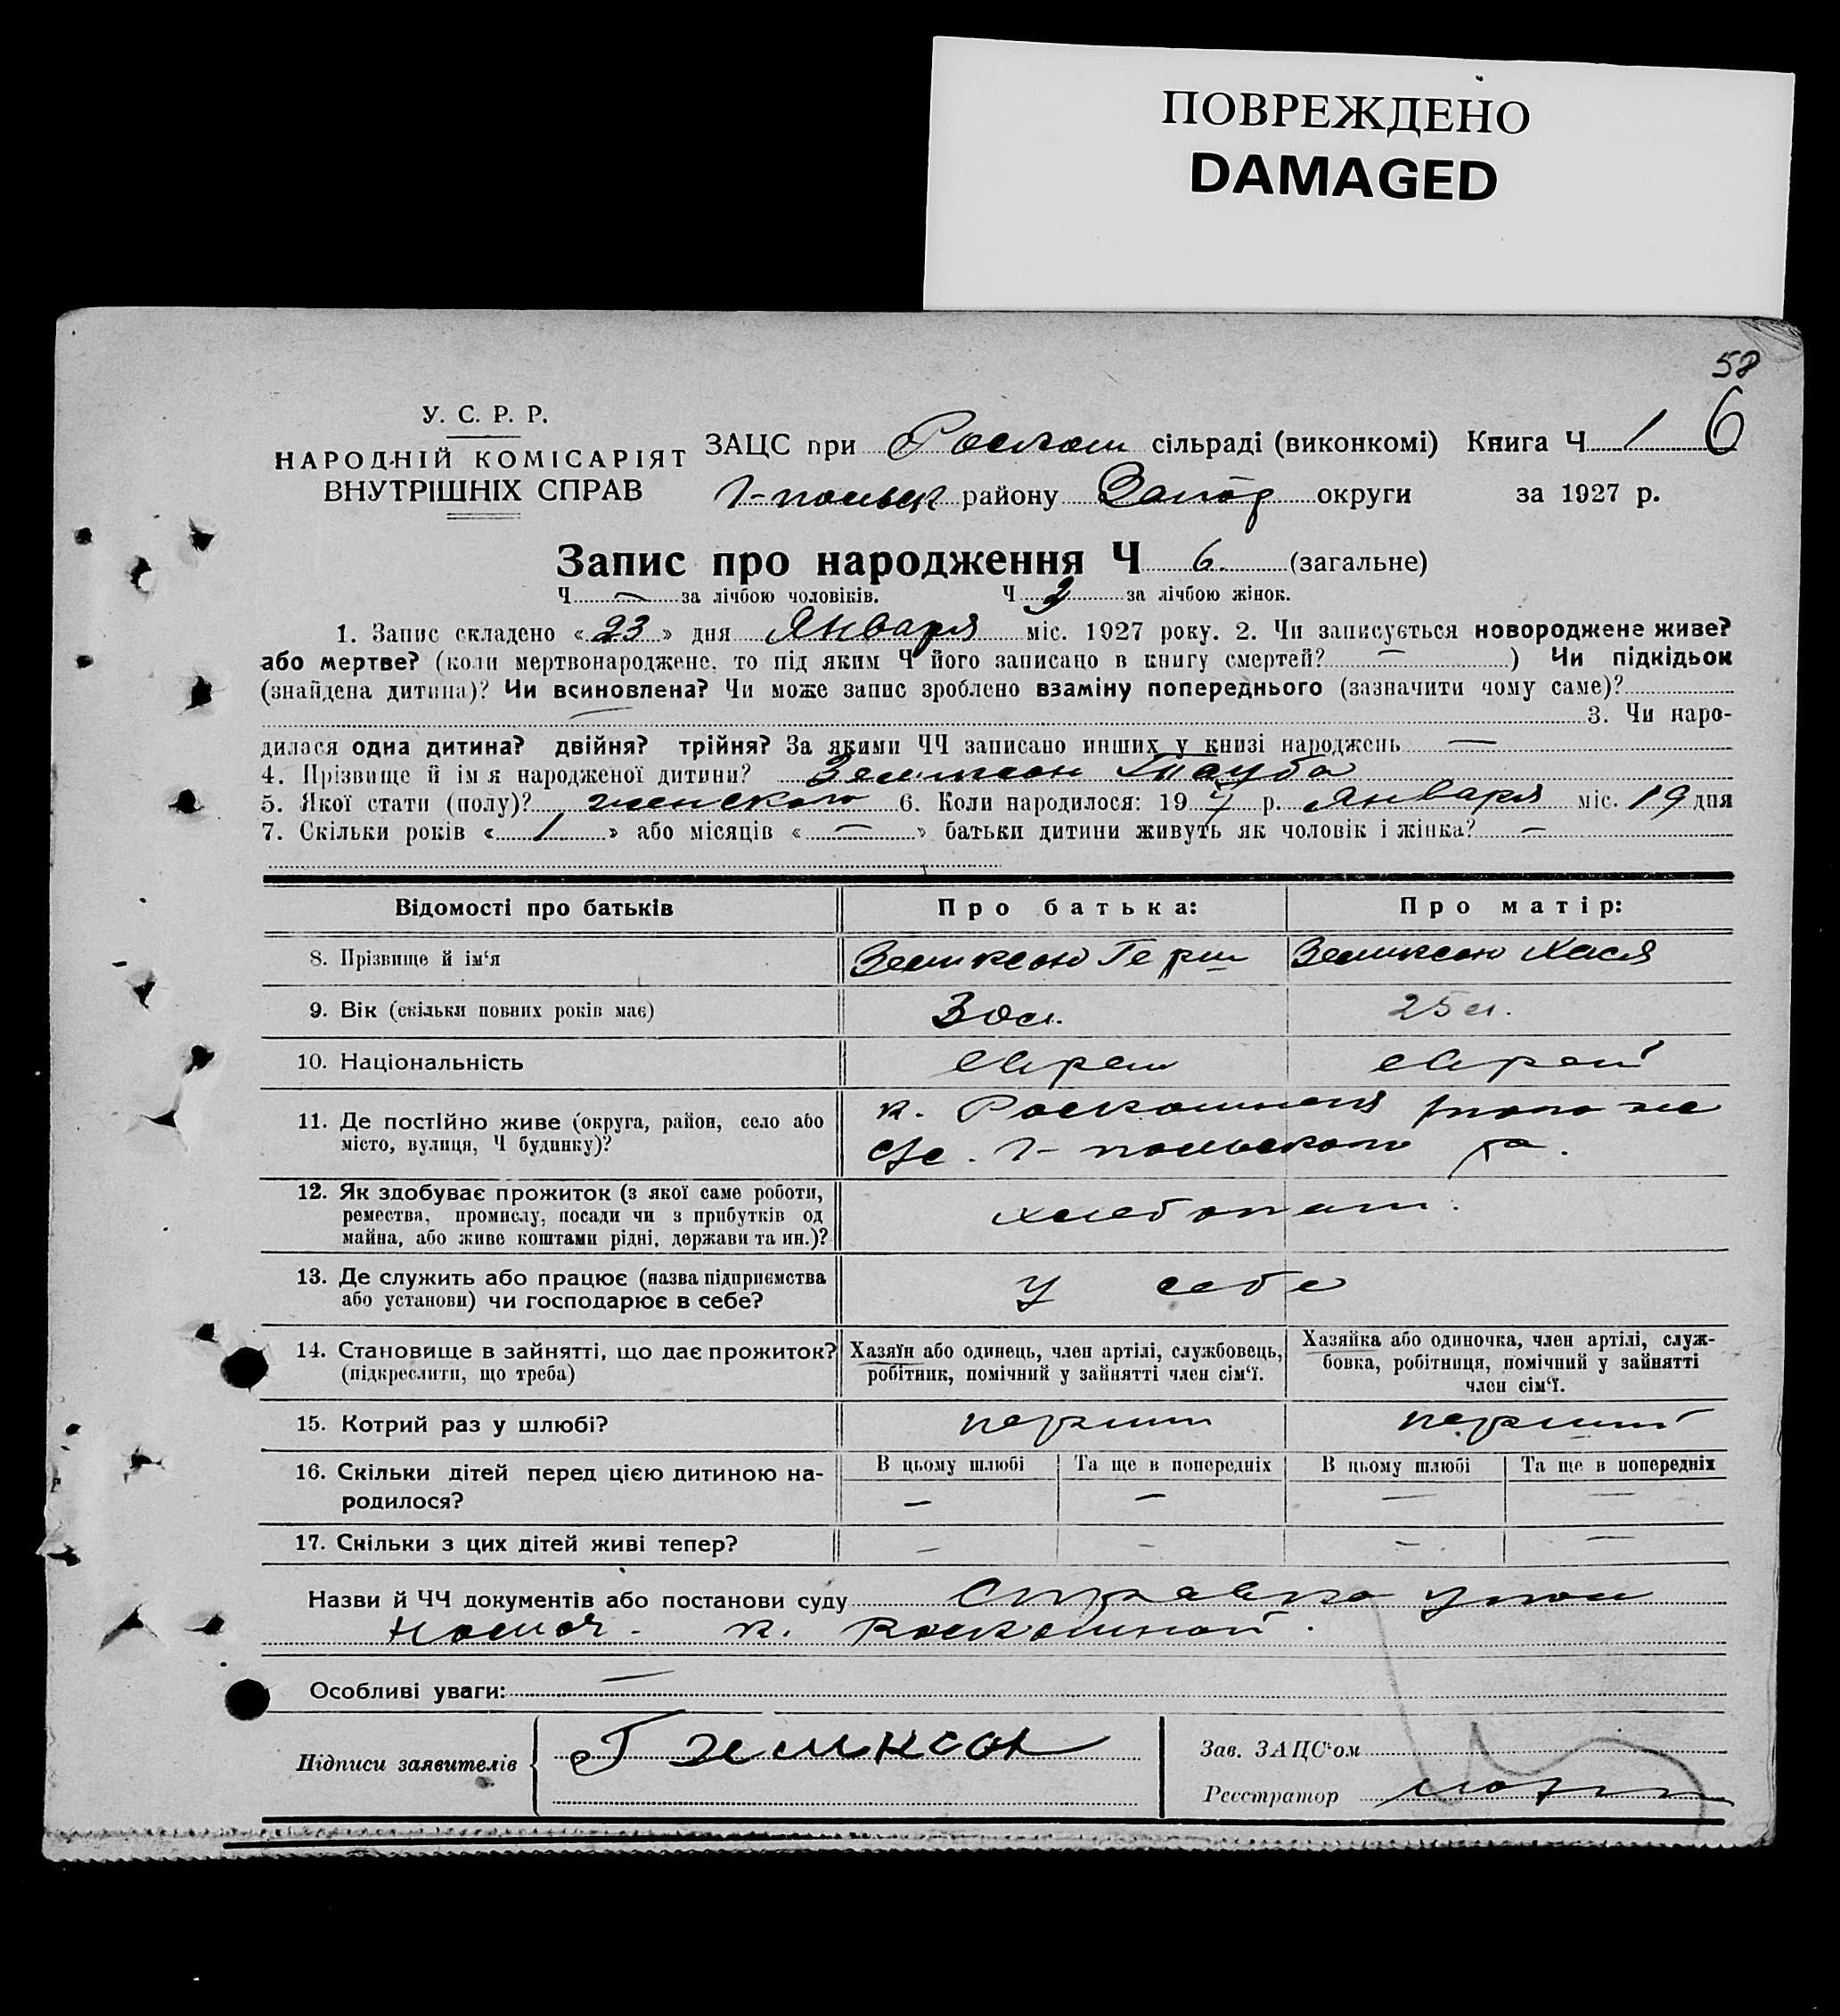 ПОВРЕЖДЕНО
DAMAGED
58
У. С. Р. Р.
НАРОДНІЙ КОМІСАРІЯТ
ВНУТРІШНІХ СПРАВ
ЗАЦС при Роскош сільраді (виконкомі) Книга Ч 1 6
району Запор округи за 1927 р.
Запис про народження Ч 6. (загальне)
Ч — за лічбою чоловіків. Ч 3 за лічбою жінок.
1. Запис складено « 23 » дня Января міс. 1927 року. 2. Чи записується новороджене живе?
або мертве? (коли мертвонароджене, то під яким Ч його записано в книгу смертей? — ) Чи підкідьок
(знайдена дитина)? Чи всиновлена? Чи може запис зроблено взаміну попереднього (зазначити чому саме)?
— 3. Чи наро-
дилася одна дитина? двійня? трійня? За якими ЧЧ записано инших у книзі народжень —
4. Прізвище й імя народженої дитини? Земиксон Тауба
5. Якої стати (полу)? женского 6. Коли народилося: 19 7 р. Января міс. 19 дня
7. Скільки років « 1 » або місяців « — » батьки дитини живуть як чоловік і жінка? —
Відомості про батьків
Про батька:
Про матір:
8. Прізвище й ім‘я
Земиксон Герш
Земиксон Хася
9. Вік (скільки повних років має)
30 л.
25 л.
10. Національність
еврей
еврей
11. Де постійно живе (округа, район, село або
місто, вулиця, Ч будинку)?
к. Роскошная того же
с/с. Г-польского ра.
12. Як здобуває прожиток (з якої саме роботи,
ремества, промислу, посади чи з прибутків од
майна, або живе коштами рідні, держави та ин.)?
хлебопаш.
13. Де служить або працює (назва підприємства
або установи) чи господарює в себе?
у себе
14. Становище в зайнятті, що дає прожиток?
(підкреслити, що треба)
Хазяїн або одинець, член артілі, службовець,
робітник, помічний у зайнятті член сім‘ї.
Хазяйка або одиночка, член артілі, служ-
бовка, робітниця, помічний у зайнятті
член сім‘ї.
15. Котрий раз у шлюбі?
первий
первий
16. Скільки дітей перед цією дитиною на-
родилося?
В цьому шлюбі
Та ще в попередніх
В цьому шлюбі
Та ще в попередніх
— — — —
17. Скільки з цих дітей живі тепер?
— — — —
Назви й ЧЧ документів або постанови суду Справка упол
к. Роскошной.
Особливі уваги: —
Підписи заявителів
Г Земиксон
Зав. ЗАЦС‘ом
Реєстратор